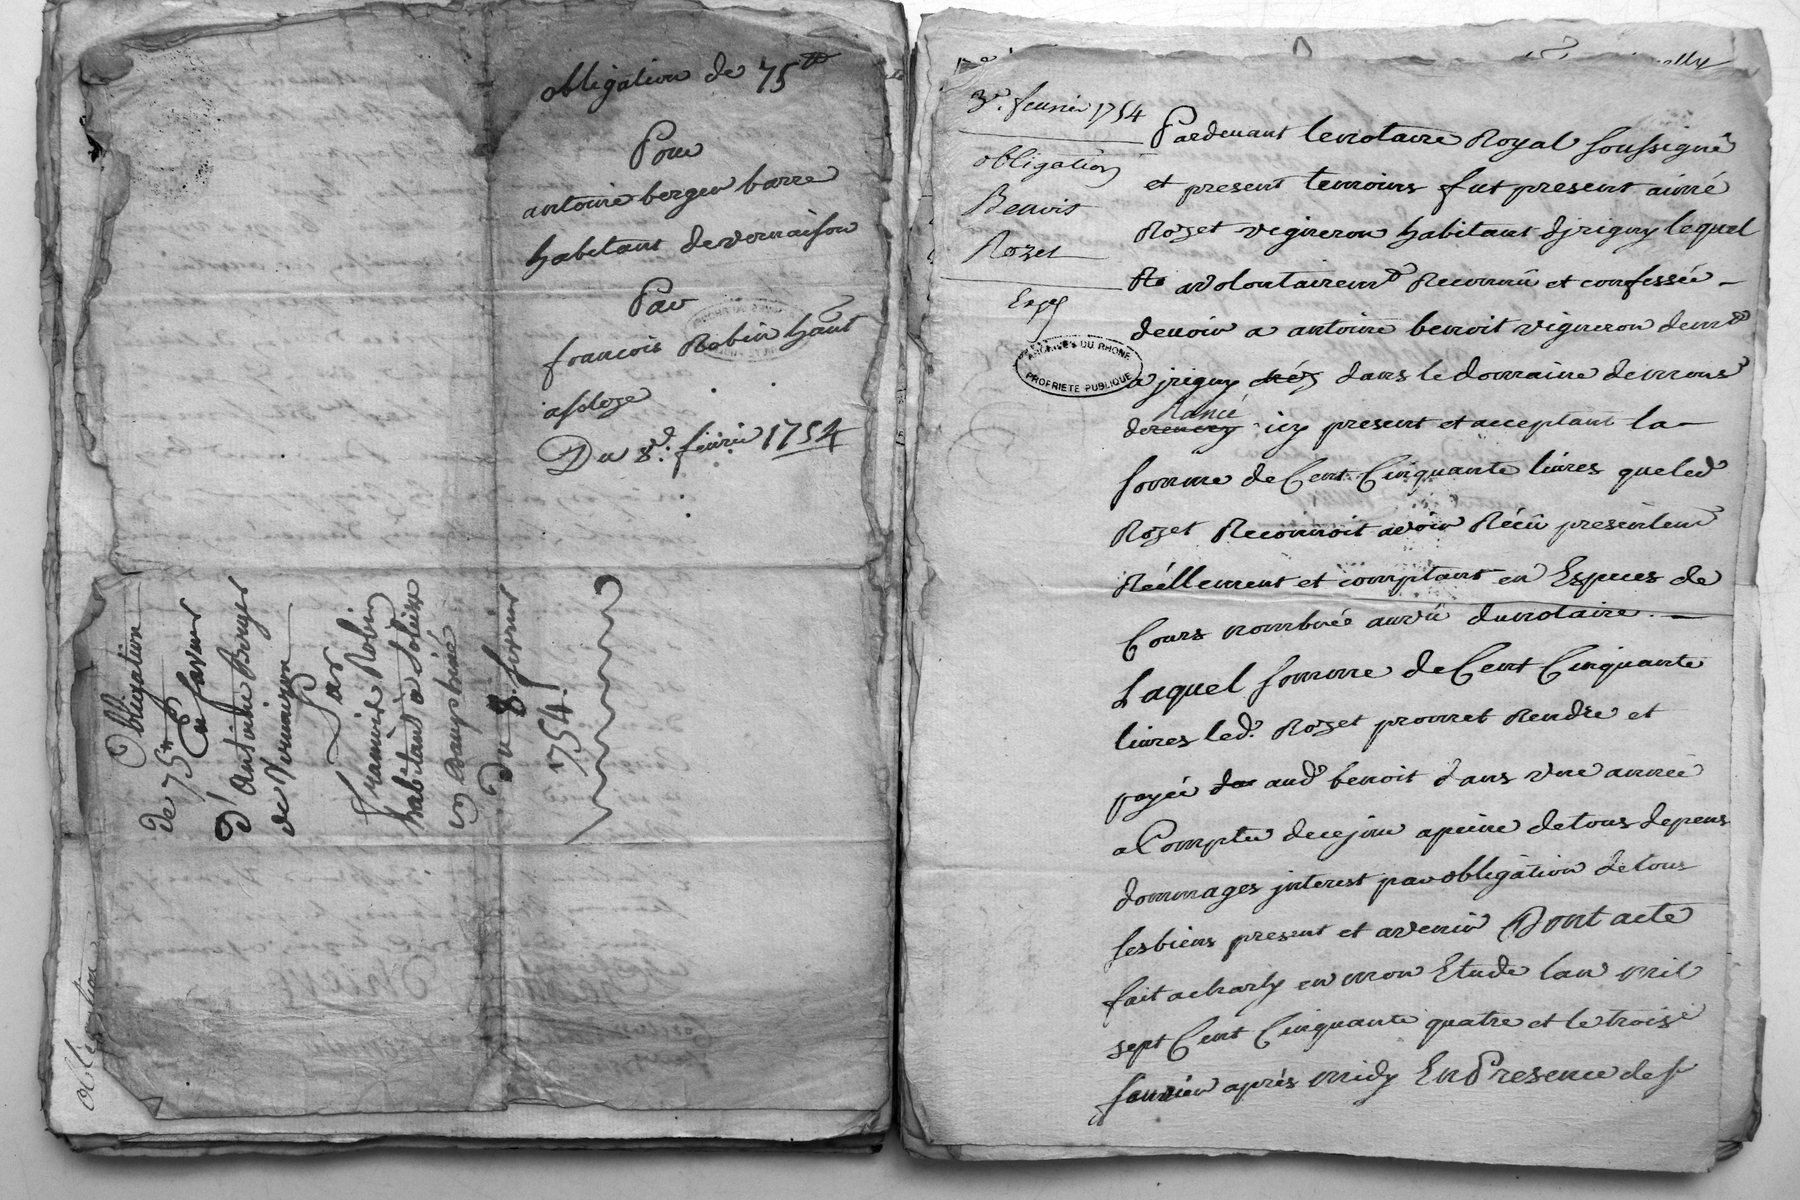 obligation de 75tt
Pour
antoine berger barre
habitant de vernaison
Par
francois Robin hant
asoleze
Du 8d. fevrier 1754
Obligation
de 75tt En faveur
D'Antoine Berger
de Vernaizon
Par
francois Robin
habitant à Solaize
en Dauphiné
Du 8. fevrier
1754.
obligation
3e. feuvrier 1754
obligation
Benois
Rozet
Exp
ARCHIVES DU RHONE
PROPRIETE PUBLIQUE
Pardevant le notaire Royal soussigné
et present temoins fut present aimé
Rozet vigneron habitant djrigny lequel
a volontairemt Reconnû et confessée
devoir a antoine benoit vigneron demt
a jrigny chés dans le domaine de mons
Rancé
de icy present et acceptant la
somme de Cent Cinquante livres que led
Rozet Reconnoit avoir Récû presentemt
Réellement et comptant en Especes de
Cours nombrée au vû du notaire.
Laquel somme de Cent Cinquante
livres led. Rozet promet Rendre et
payée aud benoit dans une année
a Compter de ce jour a peine de tous depens
dommages jnterest par obligation de tous
ses biens present et avenir Dont acte
fait a charly en mon Etude lan mil
sept Cent Cinquante quatre et le troise
feuvrier aprés midy En Presence de sr